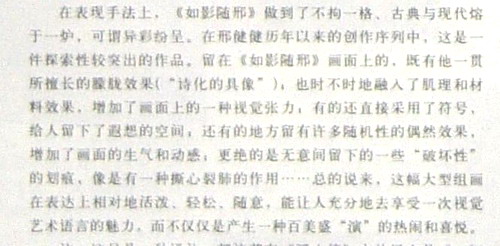 在表现手法上，《如影随邢》做到了不拘一格、古典与现代熔
于一炉，可谓异彩纷呈。在邢健健历年以来的创作序列中，这是一
件探索性较突出的作品。留在《如影随邢》画面上的，既有他一贯
所擅长的朦胧效果(“诗化的具像”)；也时不时地融入了肌理和材
料效果，增加了画面上的一种视觉张力；有的还直接采用了符号，
给人留下了遐想的空间；还有的地方留有许多随机性的偶然效果，
增加了画面的生气和动感；更绝的是无意间留下的一些“破坏性”
的划痕，像是有一种撕心裂肺的作用……总的说来，这幅大型组画
在表达上相对地活泼、轻松、随意，能让人充分地去享受一次视觉
艺术语言的魅力，而不仅仅是产生一种百美盛“演”的热闹和喜悦。